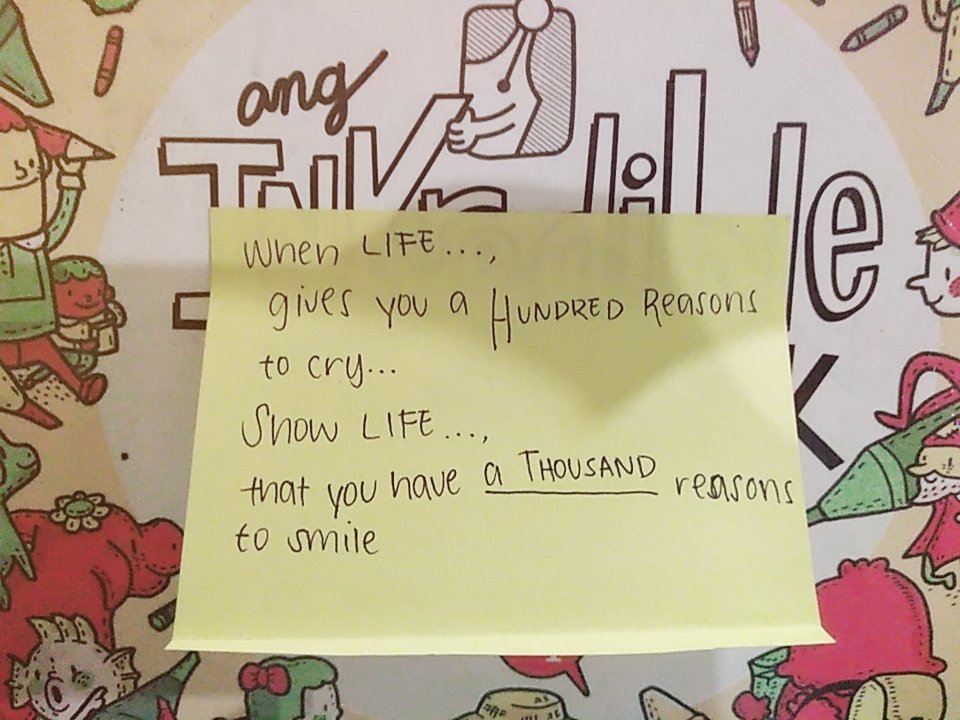 ang
When LIFE...,
gives you a HUNDRED Reasons
to cry...
Show LIFE...,
that you have a THOUSAND reasons
to smile